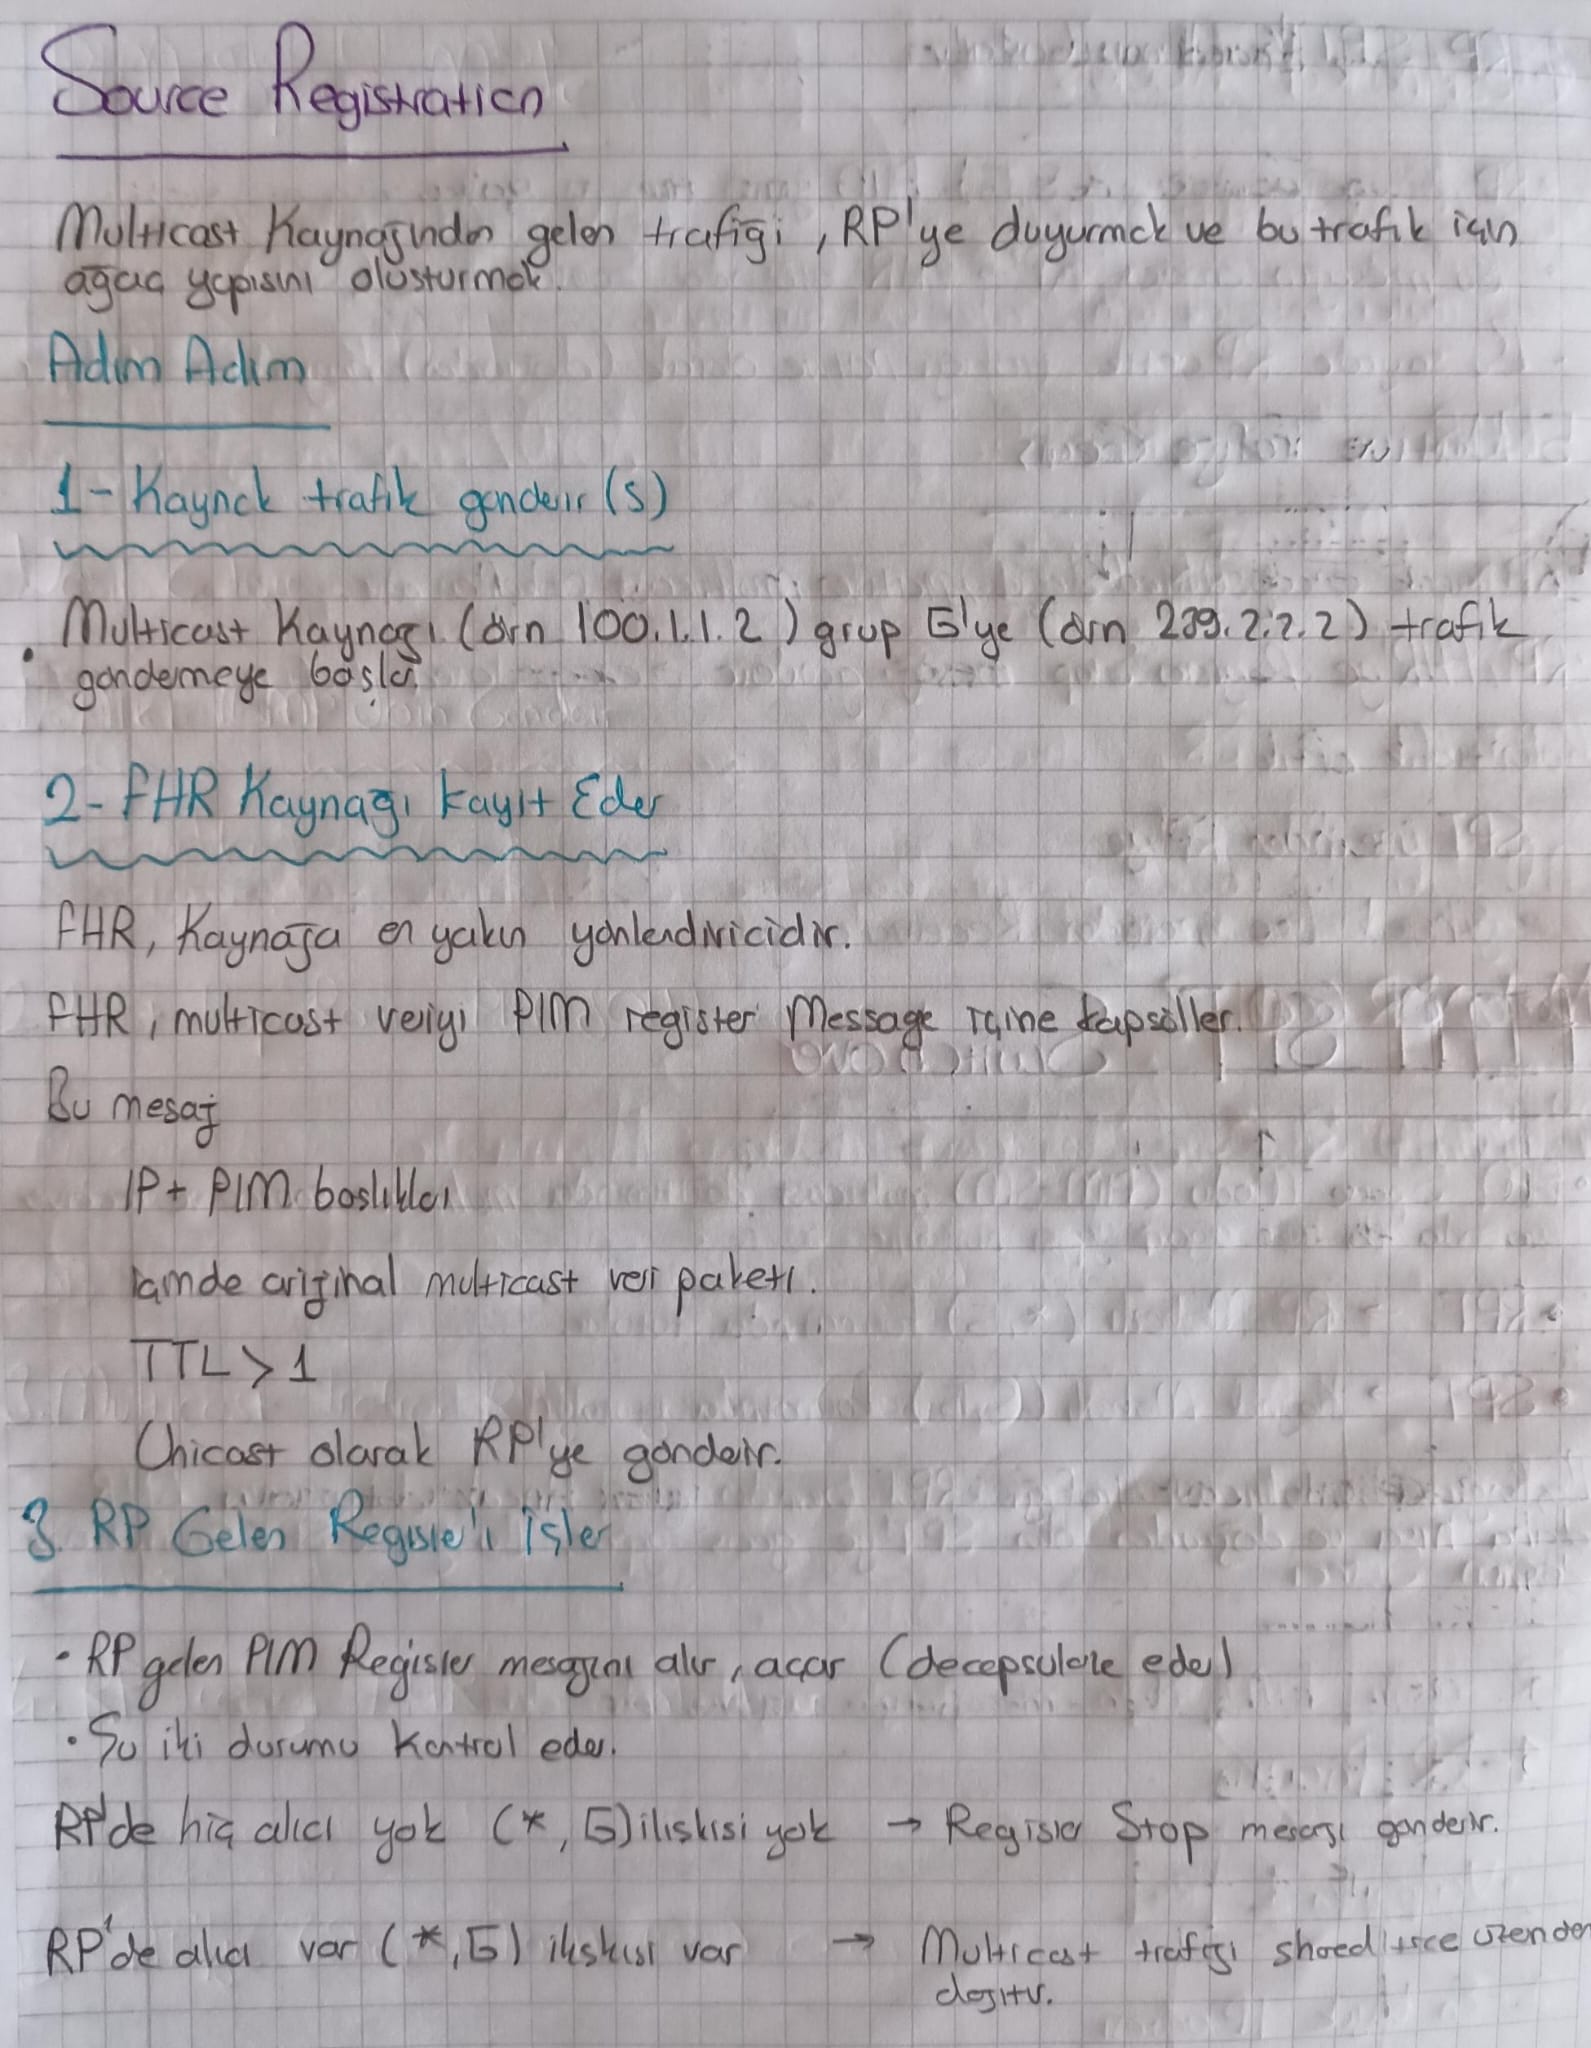 Source Registration
Multicast Kaynağından gelen trafiği, RP'ye duyurmak ve bu trafik için
ağaç yapısını oluşturmak.
Adım Adım
1- Kaynak trafik gönderir (S)
• Multicast Kaynağı (örn 100.1.1.2) grup G'ye (örn 239.2.2.2) trafik
göndermeye başlar.
2- FHR Kaynağı Kayıt Eder
FHR, Kaynağa en yakın yönlendiricidir.
FHR, multicast veriyi PIM register Message içine kapsüller.
Bu mesaj
IP + PIM başlıkları
İçinde orijinal multicast veri paketi.
TTL > 1
Unicast olarak RP'ye gönderir.
3. RP Gelen Register'ı İşler
• RP gelen PIM Register mesajını alır, açar (decapsulate eder)
• Şu iki durumu kontrol eder.
RP'de hiç alıcı yok (*, G) ilişkisi yok → Register Stop mesajı gönderir.
RP'de alıcı var (*, G) ilişkisi var → Multicast trafiği shared tree üzerinden
dağıtır.